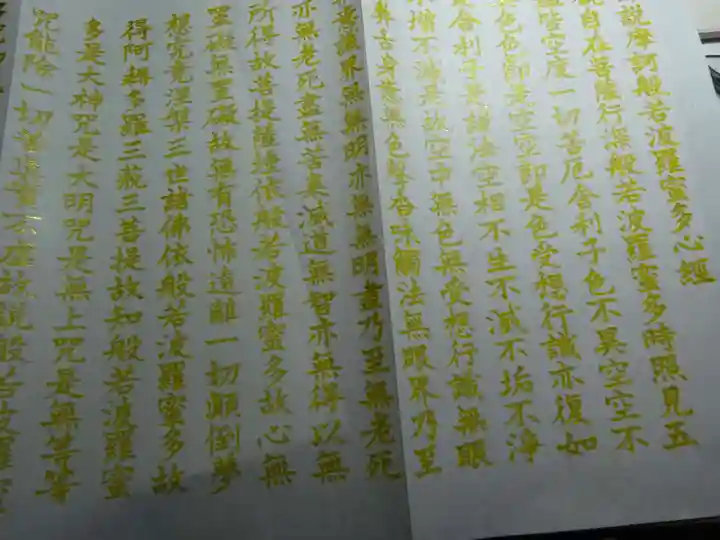 說摩訶般若波羅蜜多心經
自在菩薩行深般若波羅蜜多時照見五
皆空度一切苦厄舍利子色不異空空不
色色即是空空即是色受想行識亦復如
舍利子是諸法空相不生不滅不垢不淨
不增不減是故空中無色無受想行識無眼
鼻舌身意無色聲香味觸法無眼界乃至
意識界無無明亦無無明盡乃至無老死
亦無老死盡無苦集滅道無智亦無得以無
所得故菩提薩埵依般若波羅蜜多故心無
罣礙無罣礙故無有恐怖遠離一切顛倒夢
想究竟涅槃三世諸佛依般若波羅蜜多故
得阿耨多羅三藐三菩提故知般若波羅蜜
多是大神咒是大明咒是無上咒是無等等
咒能除一切苦真實不虛故說般若波羅蜜